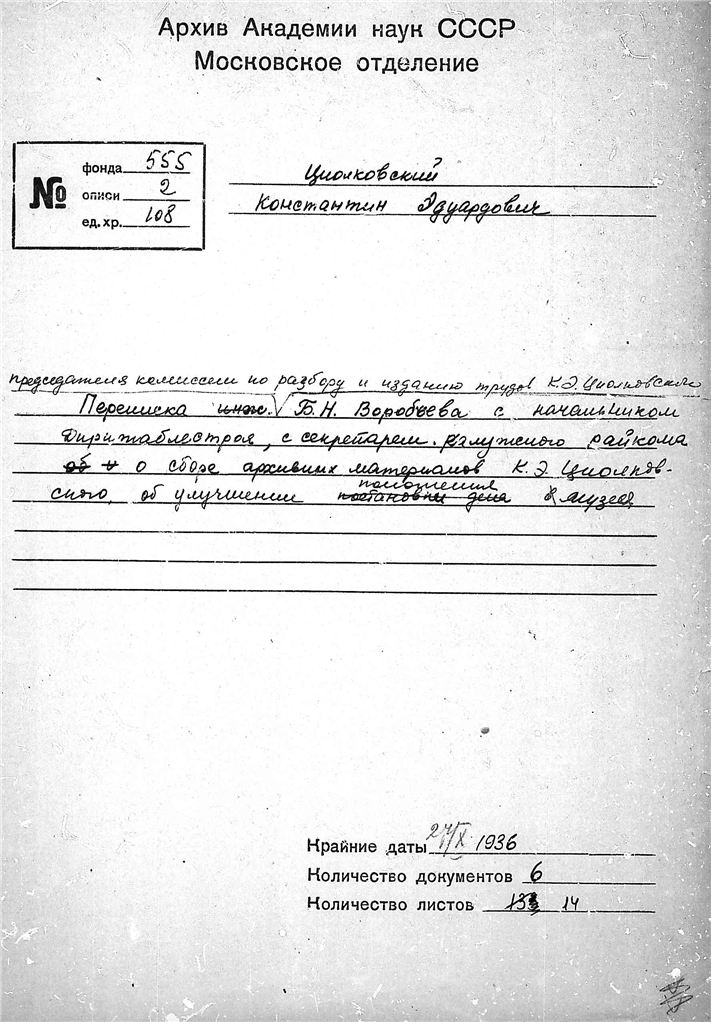 Архив Академии наук СССР
Московское отделение
№
фонда 555
описи 2
ед. хр. 108
Циолковский
Константин Эдуардович
председателя комиссии по разбору и изданию трудов К.Э. Циолковского
Переписка инж. Б.Н. Воробьева с начальником
Дирижаблестроя, с секретарем Калужского райкома
об и о сборе архивных материалов К.Э. Циолков-
ского, об улучшении постановки дела положения музея
Крайние даты 27/X 1936
Количество документов 6
Количество листов 13 14